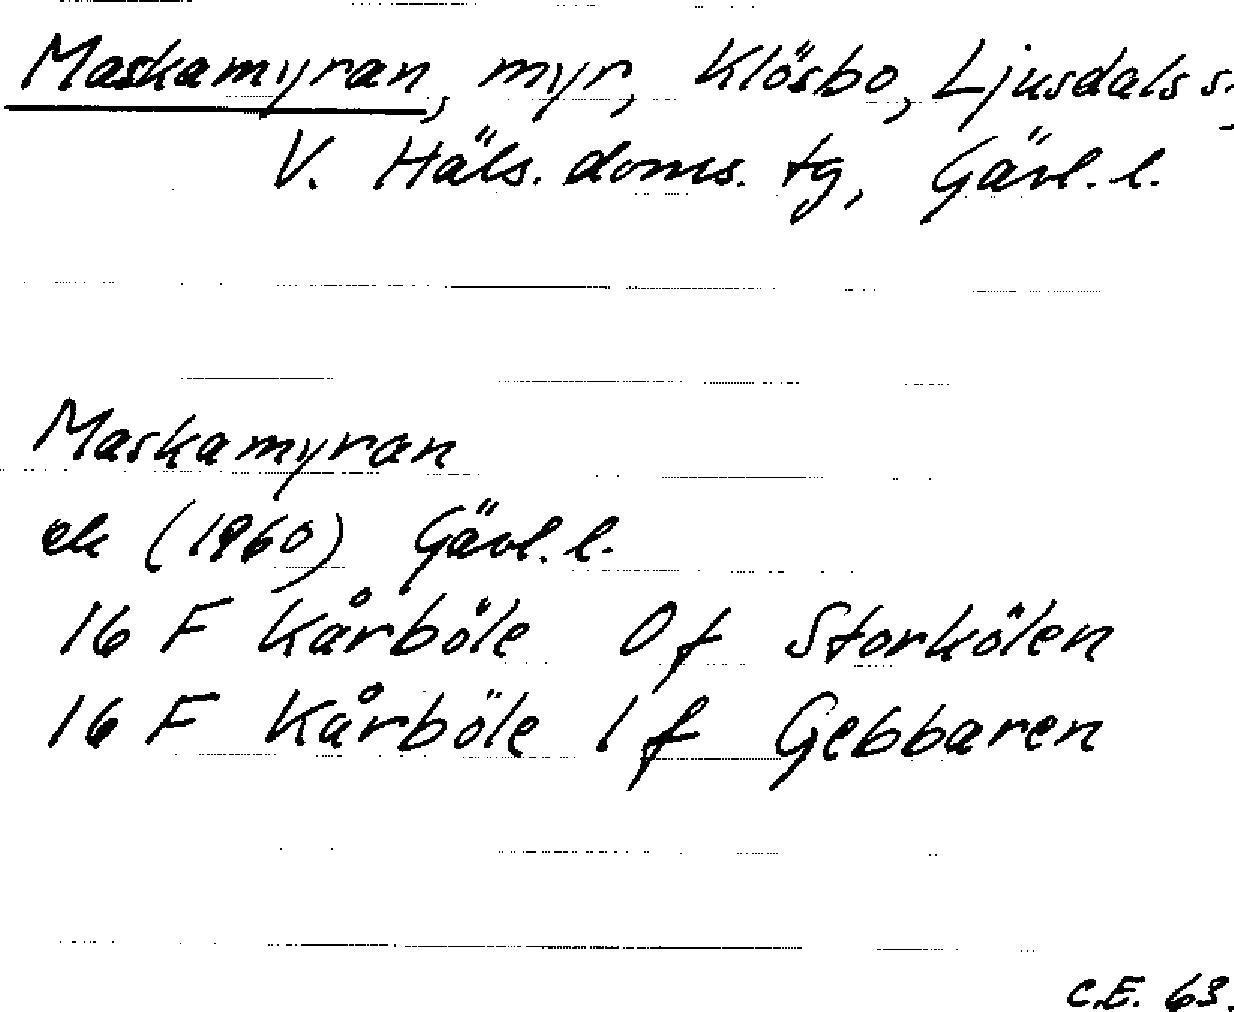 Maskamyran, myr, Klösbo, Ljusdals s.,
V. Häls. doms. tg, Gävl. l.
Maskamyran
ek (1960) Gävl. l.
16 F Kårböle 0 f Storkölen
16 F Kårböle 1 f Gebbaren
C.E. 63.